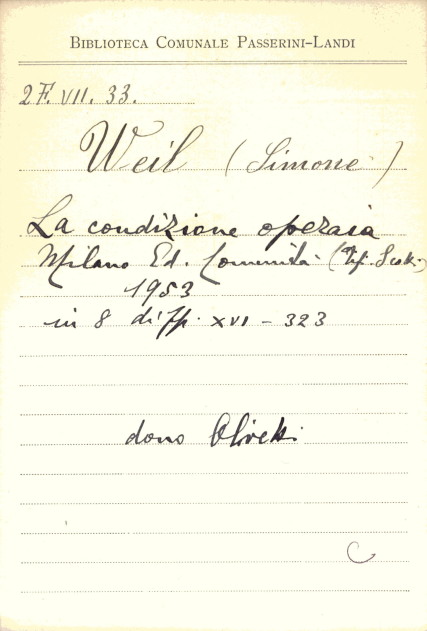 BIBLIOTECA COMUNALE PASSERINI-LANDI
2F. VII. 33.
Weil (Simone)
La condizione operaia
Milano Ed. Comunità (Tip.
1953
in 8 di ff. XVI - 323
dono Olivetti
C